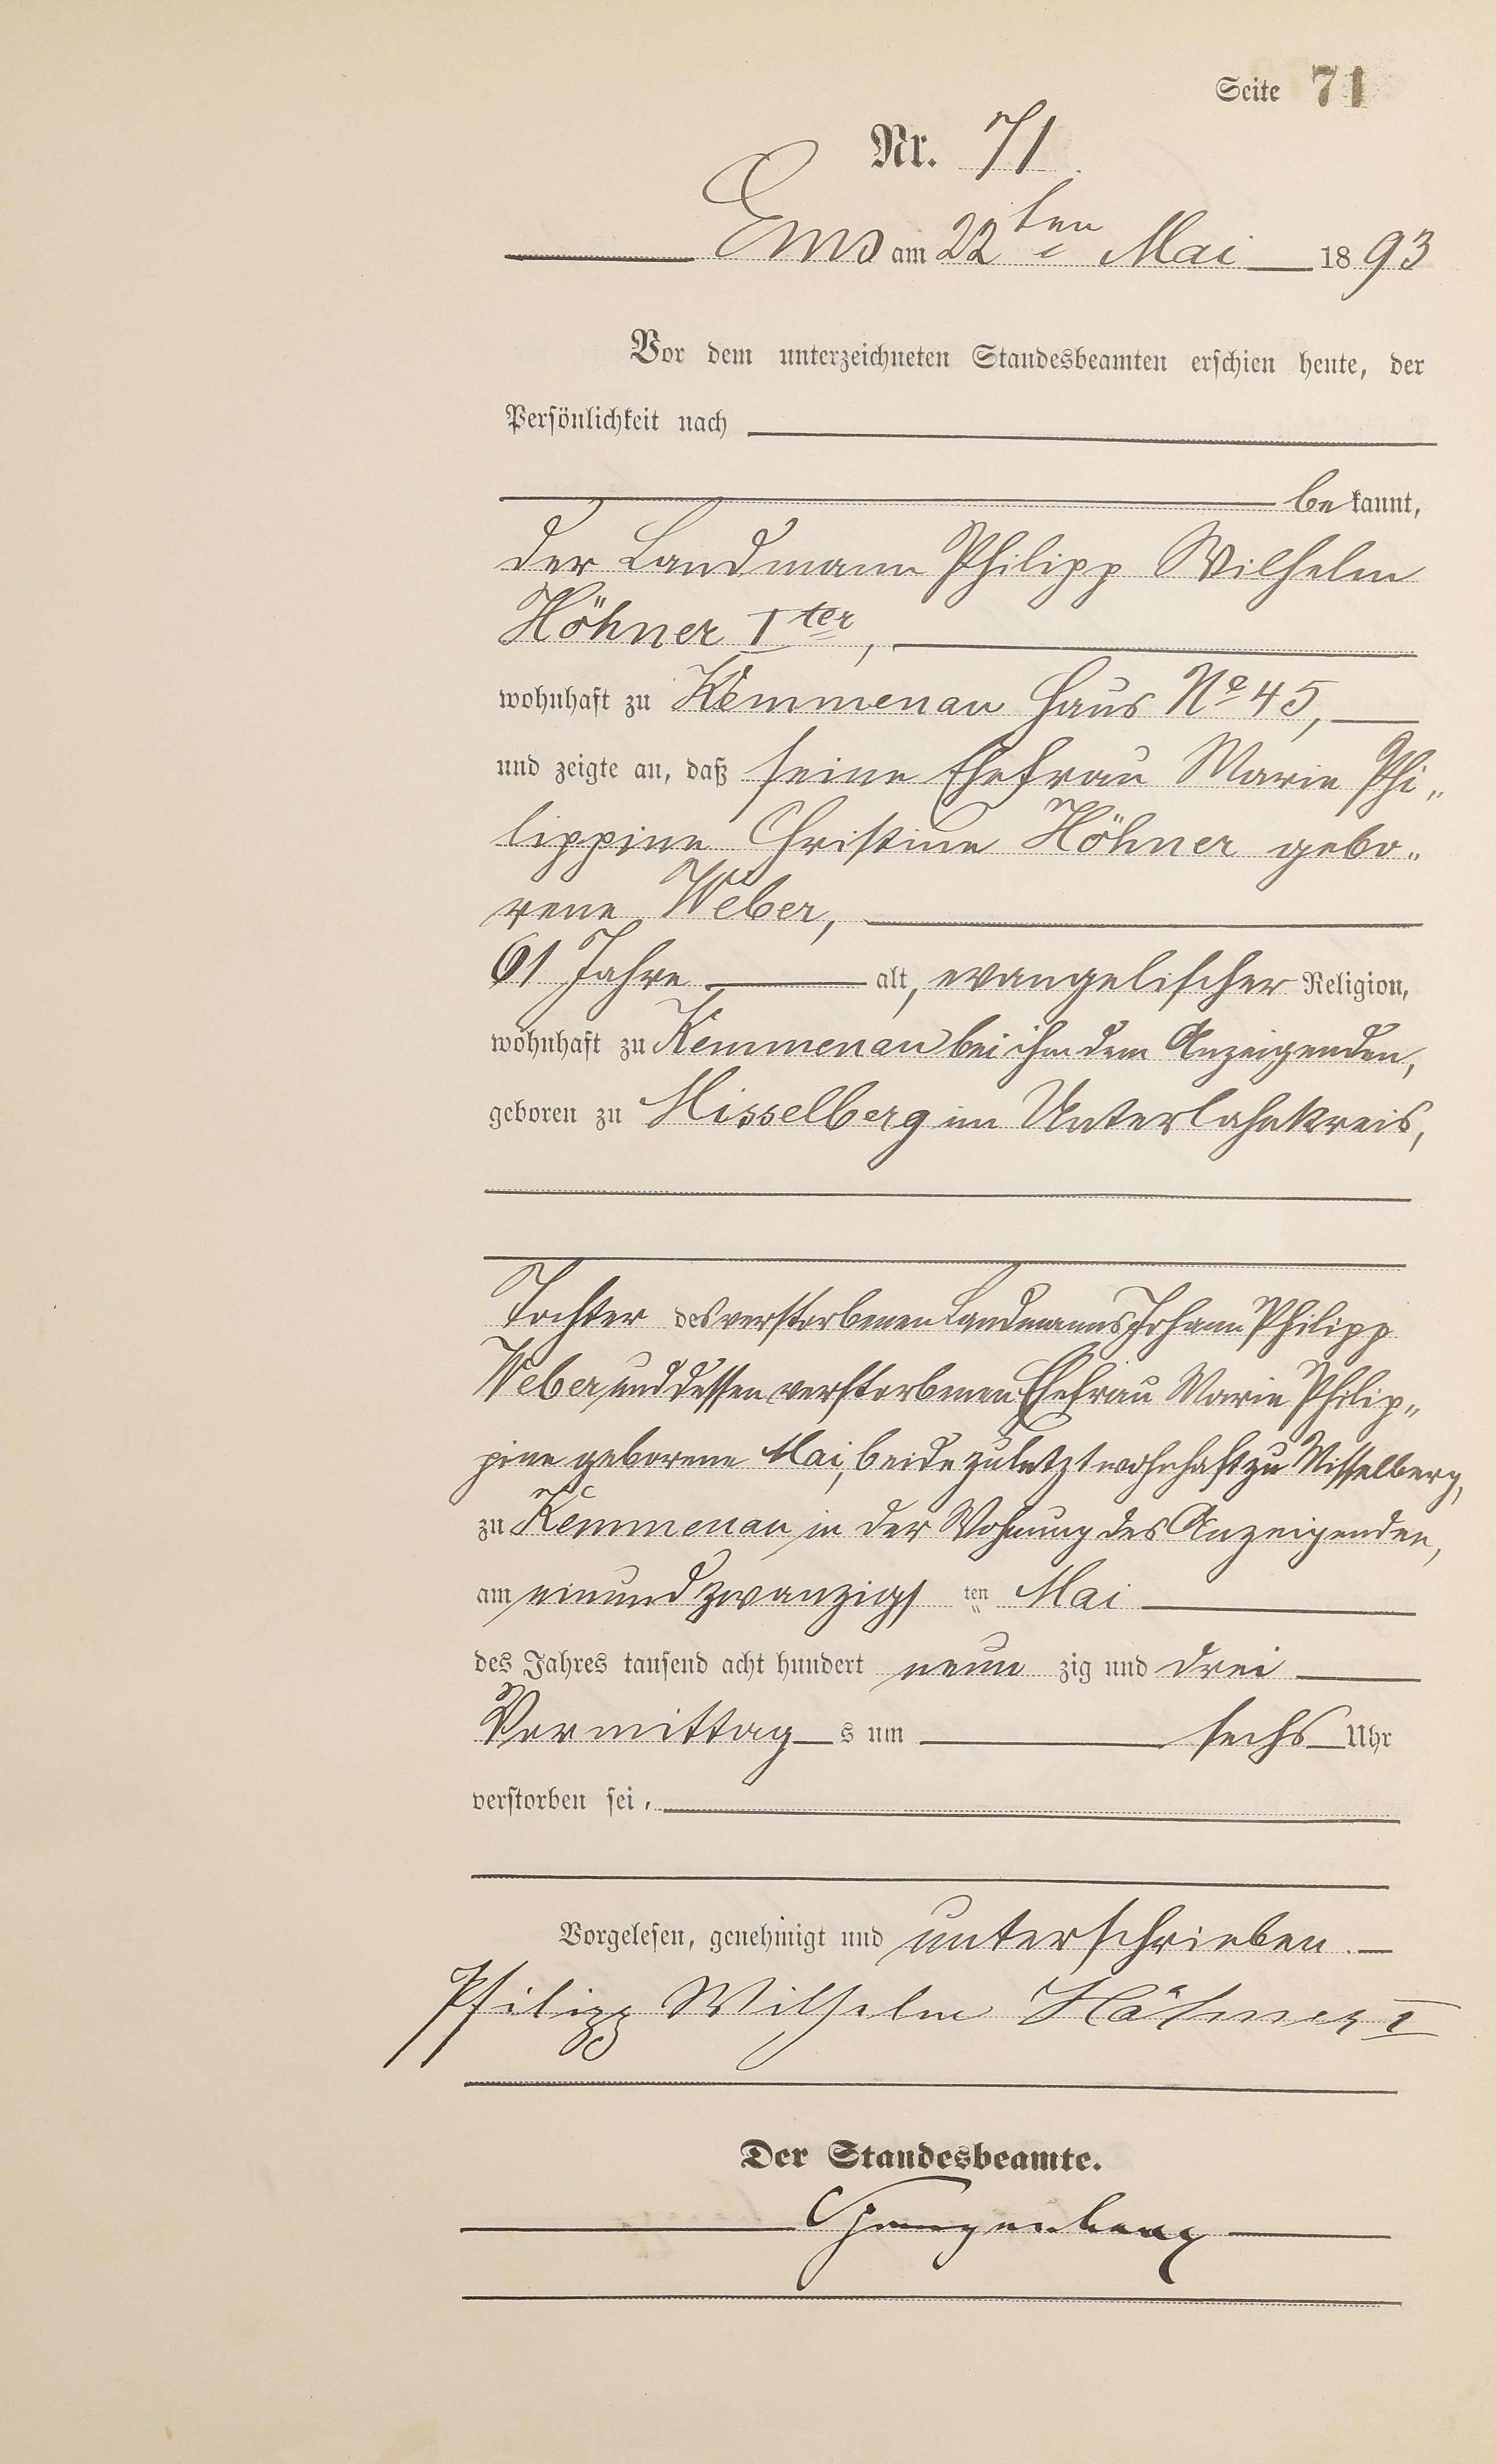 Seite 71
Nr. 71
Ems am 22ten Mai 1893
Vor dem unterzeichneten Standesbeamten erschien heute, der
Persönlichkeit nach
bekannt,
der Landmann Philipp Wilhelm
Höhner Iter,
wohnhaft zu Kemmenau Haus No 45,
und zeigte an, daß seine Ehefrau Marie Phi„
lippine Christine Höhner gebo„
rene Weber,
61 Jahre alt, evangelischer Religion,
wohnhaft zu Kemmenau bei ihm dem Anzeigenden,
geboren zu Misselberg im Unterlahnkreis,
Tochter des verstorbenen Landmanns Johann Philipp
Weber und dessen verstorbenen Ehefrau Marie Philip„
pine geborene Mai, beide zuletzt wohnhaft zu Misselberg,
zu Kemmenau in der Wohnung des Anzeigenden,
am einundzwanzigsten Mai
des Jahres tausend acht hundert neunzig und drei
Vormittags um sechs Uhr
verstorben sei.
Vorgelesen, genehmigt und unterschrieben.
Philipp Wilhelm Höhner I
Der Standesbeamte.